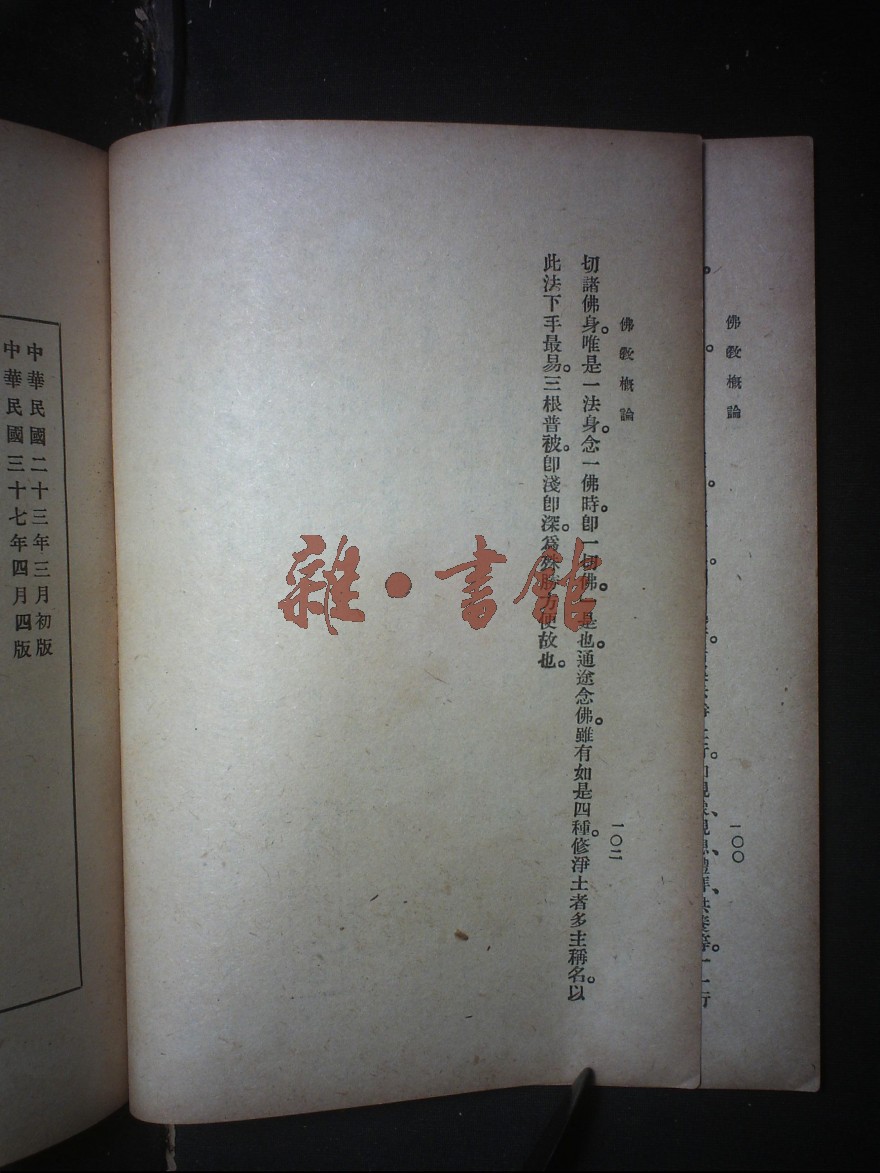 佛教概論
一〇〇
佛教概論
一〇二
切諸佛身。唯是一法身。念一佛時。卽一切佛。是也。通途念佛。雖有如是四種。修淨土者多主稱名。以
此法下手最易。三根普被。卽淺卽深。爲殊勝方便故也。
中華民國二十三年三月初版
中華民國三十七年四月四版
雜·書館